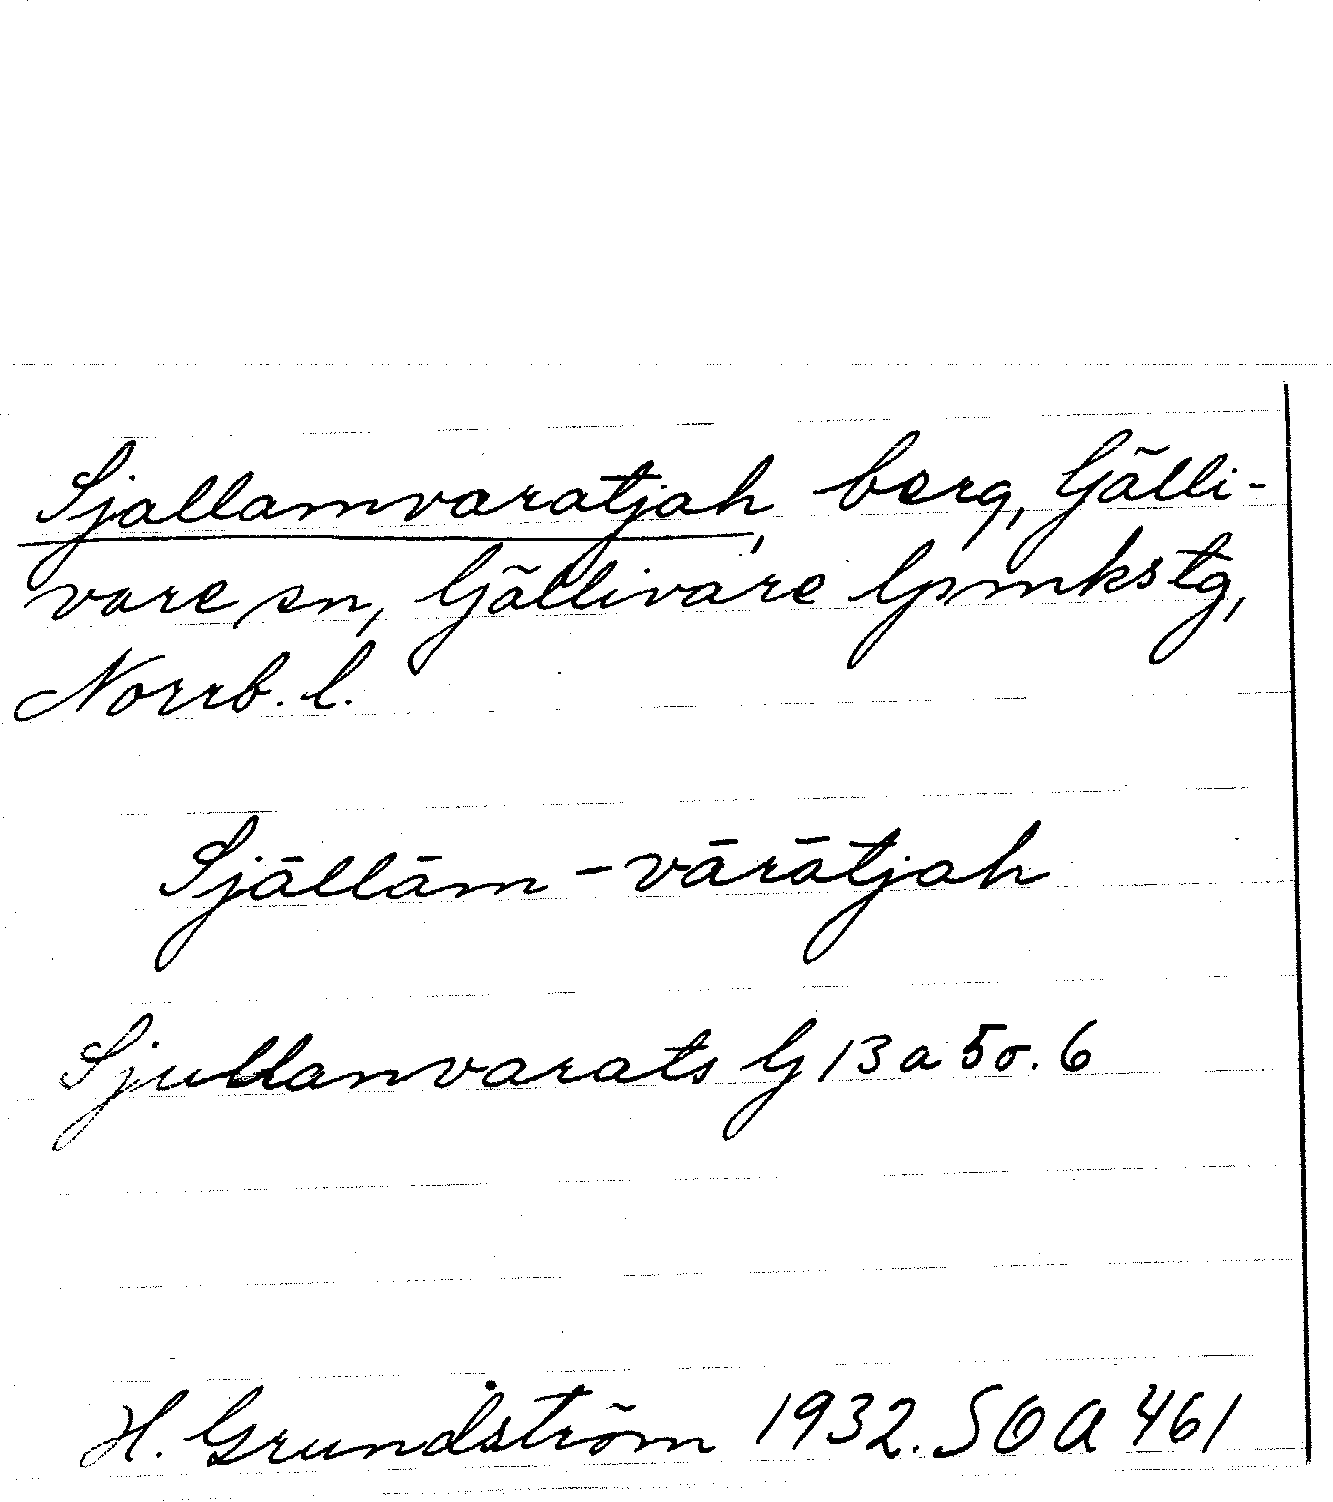 Sjallamvaratjah, berg, Gälli-
vare sn, Gällivare lpmkstg,
Norrb. l.
Sjāllām-vārātjah
Sjullanvarats G 13 a 5 o. 6
H. Grundström 1932. SOA 461